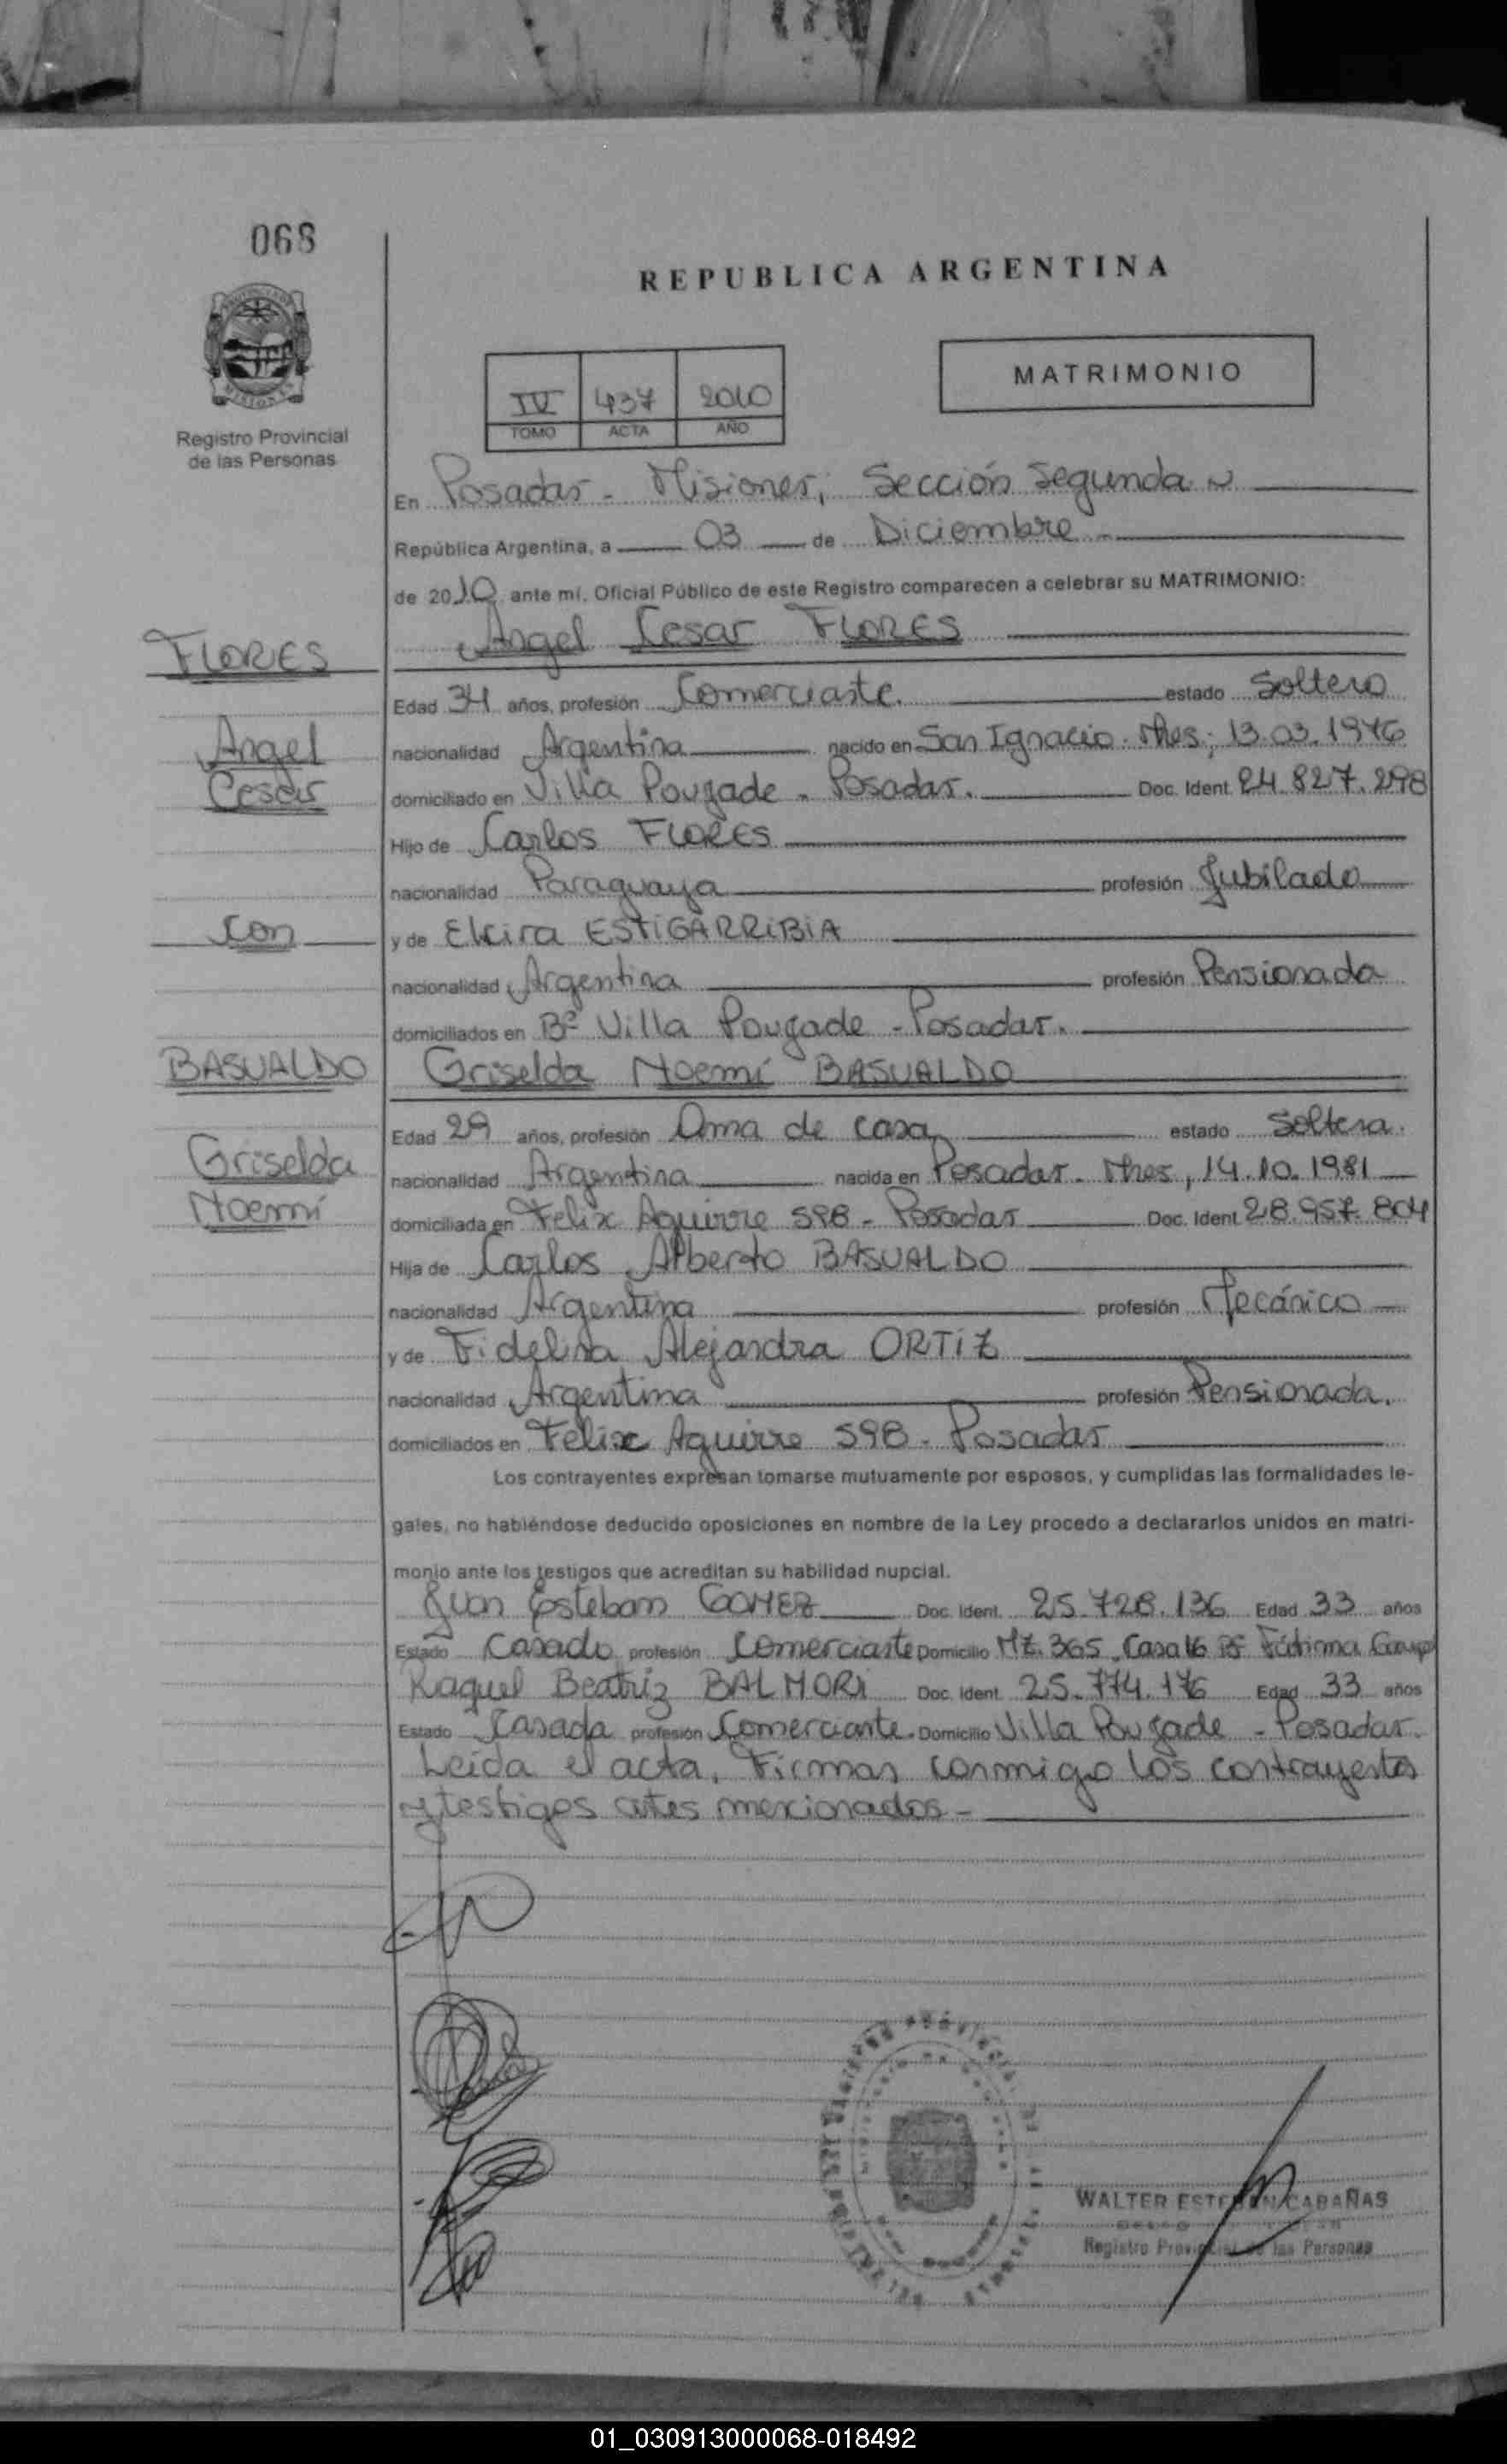 068
REPUBLICA ARGENTINA
MATRIMONIO
IV 437 2010
TOMO ACTA AÑO
Registro Provincial
de las Personas
En Posadas - Misiones, Sección Segunda
República Argentina, a 03 de Diciembre
de 2010 ante mí, Oficial Público de este Registro comparecen a celebrar su MATRIMONIO:
Angel Cesar FLORES
FLORES
Edad 34 años, profesión Comerciante. estado Soltero
Angel
nacionalidad Argentina nacido en San Ignacio. Mnes; 13.03.1976
Cesar
domiciliado en Villa Pougade - Posadas. Doc. Ident. 24.827.298
Hijo de Carlos FLORES
nacionalidad Paraguaya profesión Jubilado
con
y de Elcira ESTIGARRIBIA
nacionalidad Argentina profesión Pensionada
domiciliados en Bº Villa Pougade - Posadas.
BASUALDO
Griselda Noemí BASUALDO
Edad 29 años, profesión Ama de casa estado Soltera.
Griselda
nacionalidad Argentina nacida en Posadas. Mnes, 14.10.1981
Noemí
domiciliada en Felix Aguirre 598 - Posadas Doc. Ident. 28.957.804
Hija de Carlos Alberto BASUALDO
nacionalidad Argentina profesión Mecánico
y de Fidelina Alejandra ORTIZ
nacionalidad Argentina profesión Pensionada.
domiciliados en Felix Aguirre 598 - Posadas
Los contrayentes expresan tomarse mutuamente por esposos, y cumplidas las formalidades le-
gales, no habiéndose deducido oposiciones en nombre de la Ley procedo a declararlos unidos en matri-
monio ante los testigos que acreditan su habilidad nupcial.
Juan Esteban GOMEZ Doc. Ident. 25.728.136 Edad 33 años
Estado Casado profesión Comerciante Domicilio Mz. 365, Casa 16 Bº Fátima
Raquel Beatriz BALMORI Doc. Ident. 25.774.176 Edad 33 años
Estado Casada profesión Comerciante. Domicilio Villa Pougade - Posadas.
Leída el acta, Firman conmigo los contrayentes
y testigos antes mencionados -
WALTER ESTEBAN CABAÑAS
Registro Provincial de las Personas
01_030913000068-018492